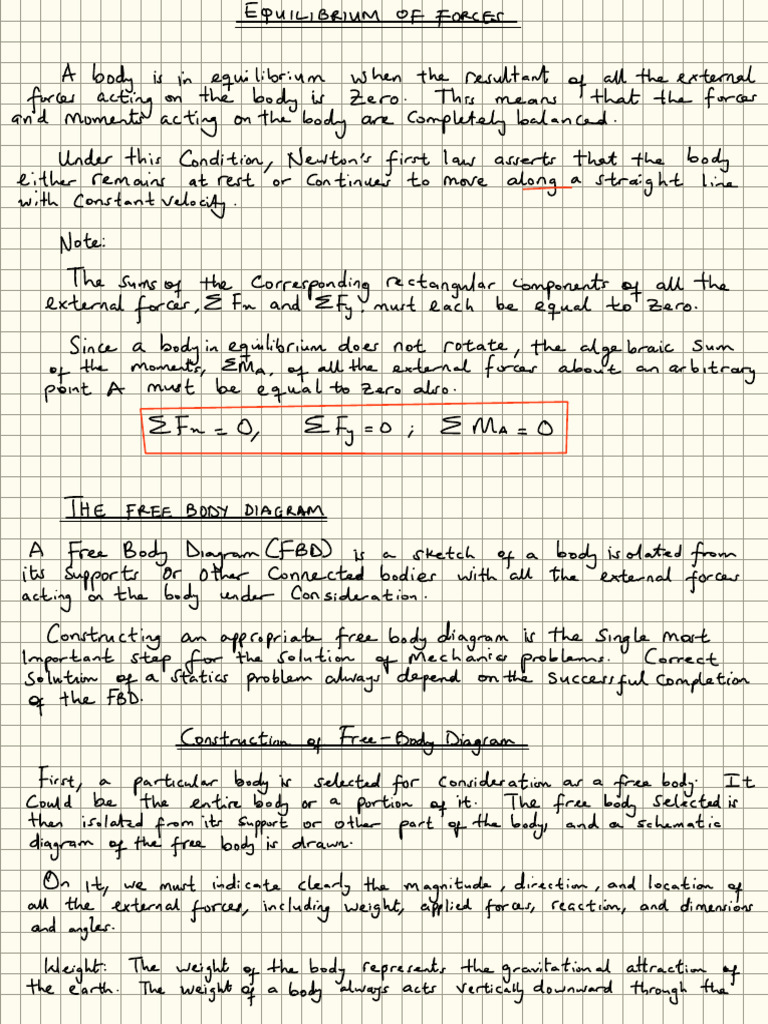 EQUILIBRIUM OF FORCES
A body is in equilibrium when the resultant of all the external
forces acting on the body is Zero. This means that the forces
and moments acting on the body are completely balanced.
Under this Condition, Newton's first law asserts that the body
either remains at rest or continues to move along a straight line
with constant velocity.
Note:
The sums of the corresponding rectangular components of all the
external forces, ΣFx and ΣFy, must each be equal to zero.
Since a body in equilibrium does not rotate, the algebraic sum
of the moments, ΣMA, of all the external forces about an arbitrary
point A must be equal to zero also.
ΣFx = 0, ΣFy = 0 ; ΣMA = 0
THE FREE BODY DIAGRAM
A Free Body Diagram (FBD) is a sketch of a body isolated from
its supports or other connected bodies with all the external forces
acting on the body under Consideration.
Constructing an appropriate free body diagram is the single most
important step for the solution of mechanics problems. Correct
solution of a statics problem always depend on the successful completion
of the FBD.
Construction of Free-Body Diagram
First, a particular body is selected for consideration as a free body. It
could be the entire body or a portion of it. The free body selected is
then isolated from its support or other part of the body, and a schematic
diagram of the free body is drawn.
On it, we must indicate clearly the magnitude, direction, and location of
all the external forces, including weight, applied forces, reaction, and dimensions
and angles.
Weight: The weight of the body represents the gravitational attraction of
the earth. The weight of a body always acts vertically downward through the